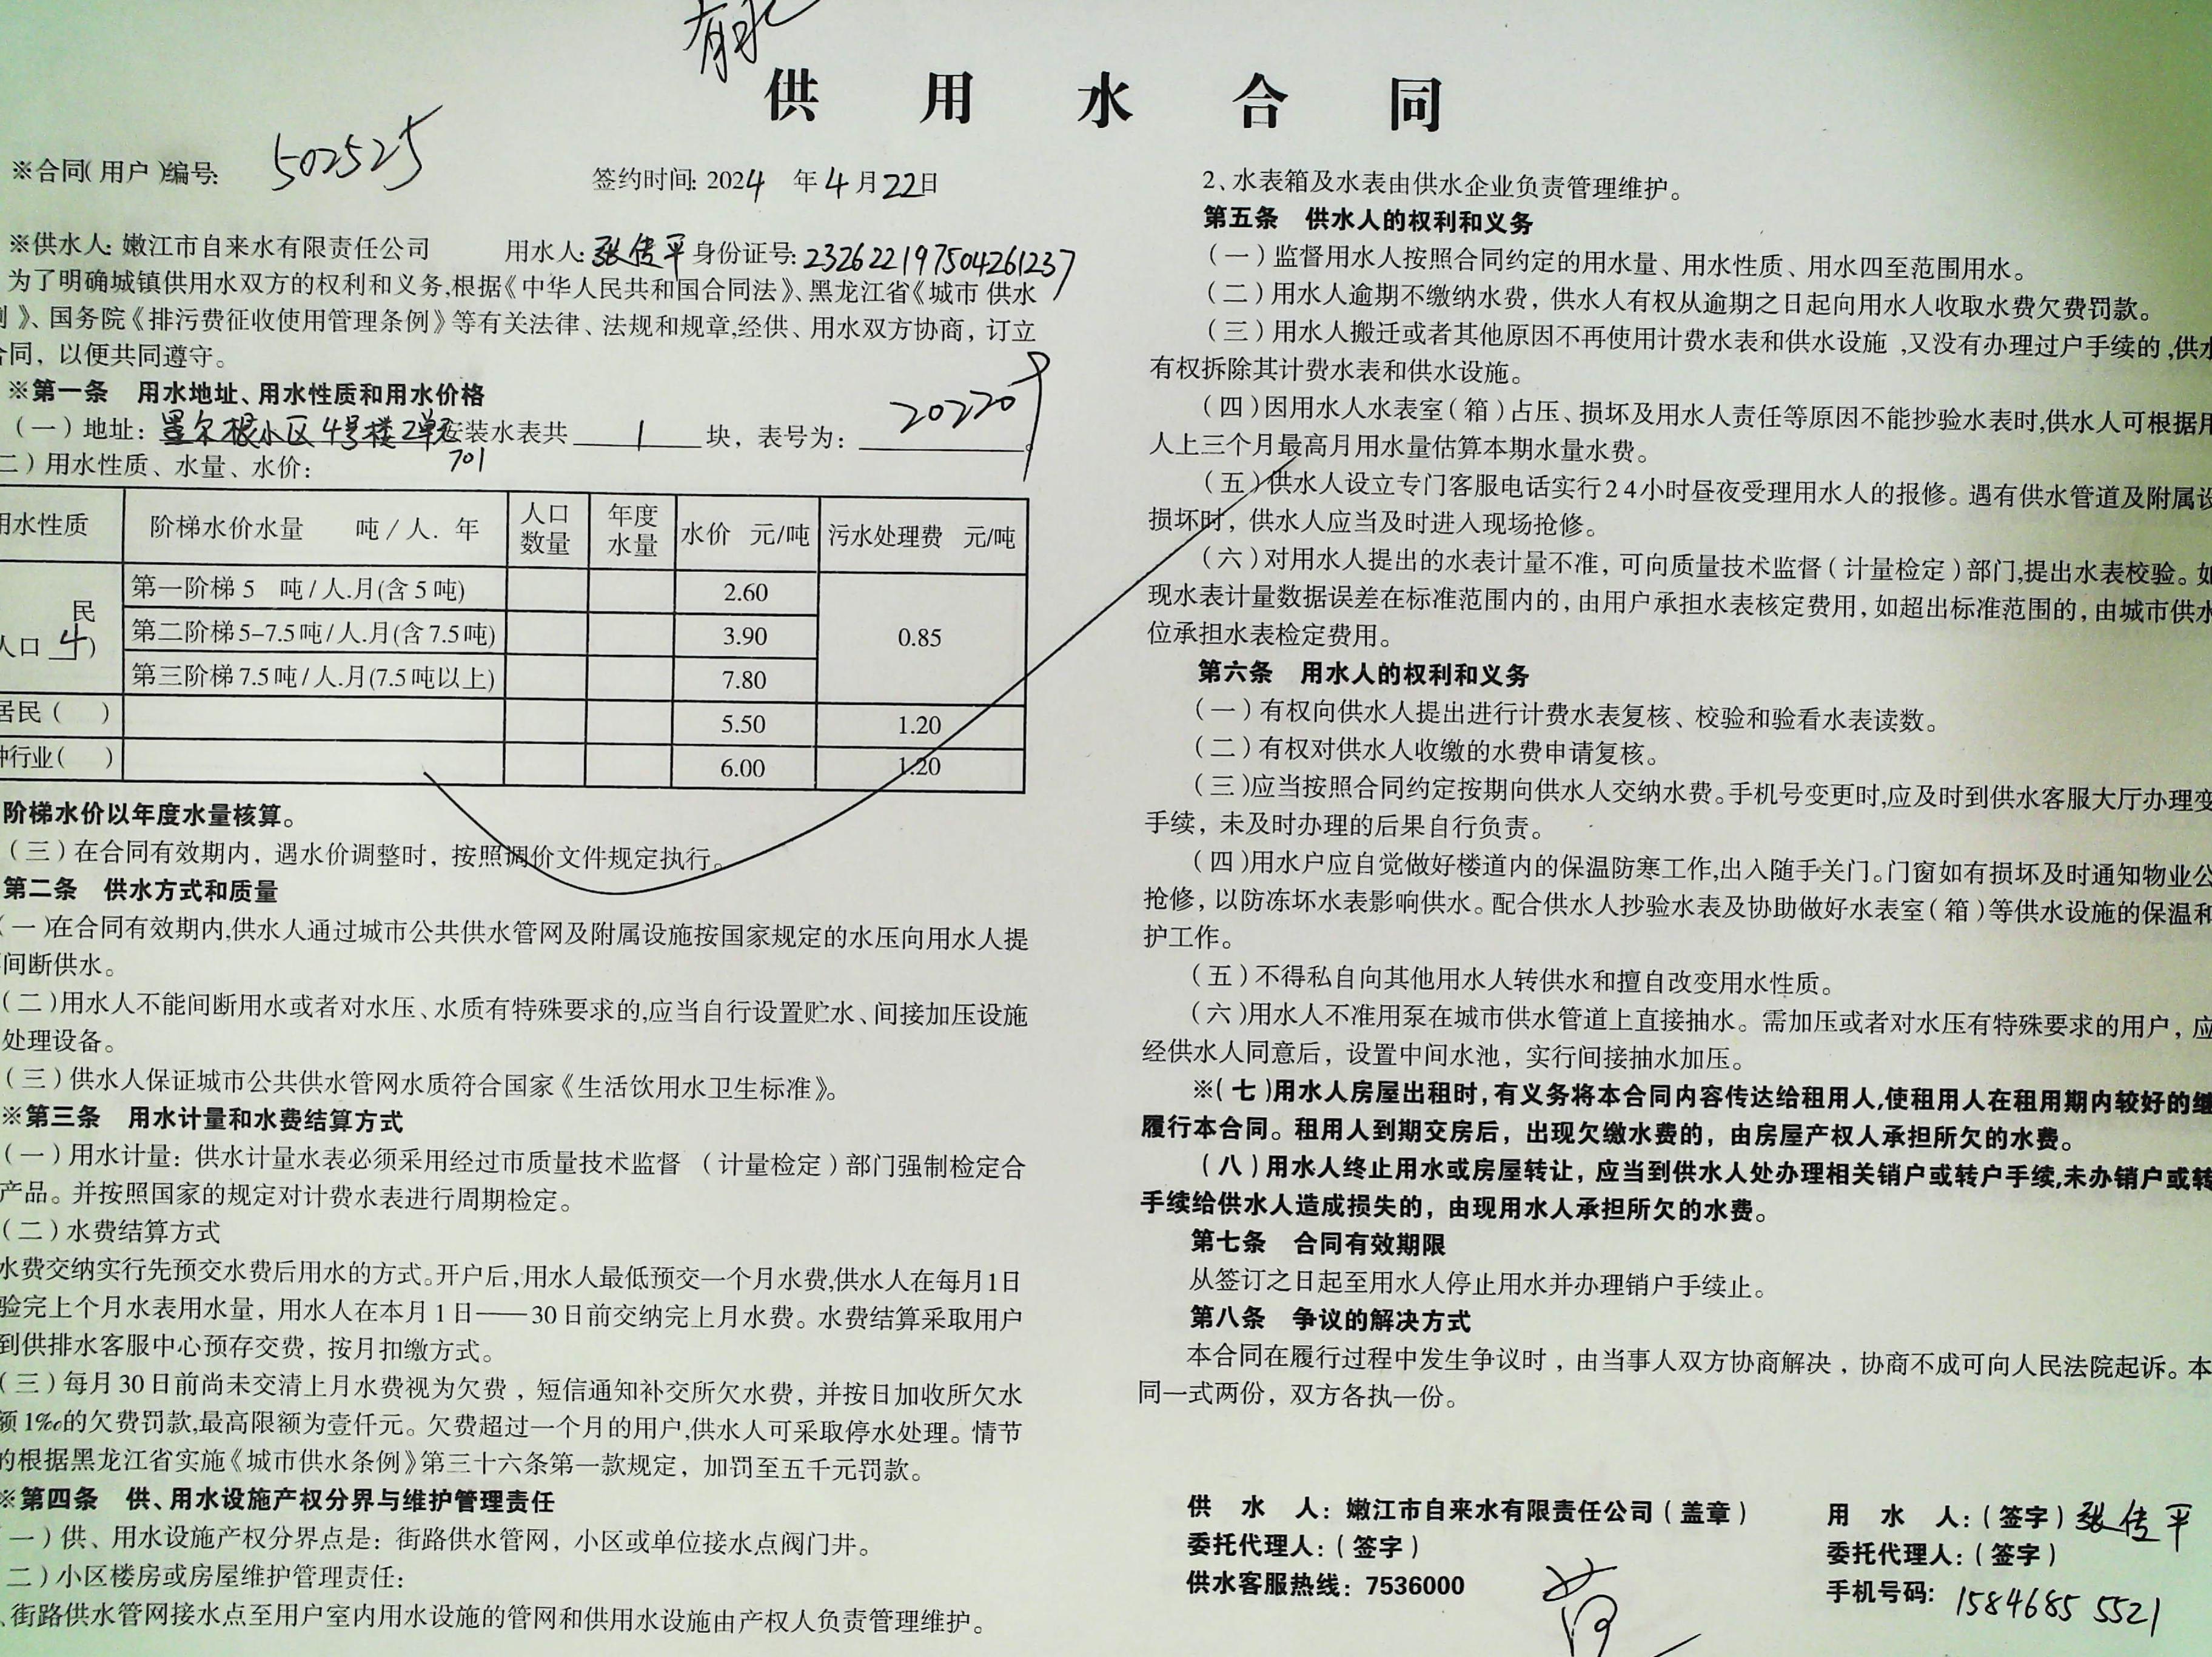 有水
供 用 水 合 同
※合同(用户)编号: 502525 签约时间: 2024 年 4 月 22 日
※供水人: 嫩江市自来水有限责任公司 用水人: 张传平 身份证号: 232622197504261237
为了明确城镇供用水双方的权利和义务,根据《中华人民共和国合同法》、黑龙江省《城市 供水
》、国务院《排污费征收使用管理条例》等有关法律、法规和规章,经供、用水双方协商，订立
合同，以便共同遵守。
※第一条 用水地址、用水性质和用水价格
（一）地址：墨尔根小区4号楼2单元 安装水表共 1 块，表号为：202209
701
二）用水性质、水量、水价：
用水性质 阶梯水价水量 吨/人. 年 人口数量 年度水量 水价 元/吨 污水处理费 元/吨
民 第一阶梯 5 吨/人.月(含 5 吨) 2.60
人口 4) 第二阶梯 5-7.5 吨/人.月(含 7.5 吨) 3.90 0.85
第三阶梯 7.5 吨/人.月(7.5 吨以上) 7.80
居民（ ） 5.50 1.20
种行业（ ） 6.00 1.20
阶梯水价以年度水量核算。
（三）在合同有效期内，遇水价调整时，按照调价文件规定执行。
第二条 供水方式和质量
（一）在合同有效期内,供水人通过城市公共供水管网及附属设施按国家规定的水压向用水人提
间断供水。
（二）用水人不能间断用水或者对水压、水质有特殊要求的,应当自行设置贮水、间接加压设施
处理设备。
（三）供水人保证城市公共供水管网水质符合国家《生活饮用水卫生标准》。
※第三条 用水计量和水费结算方式
（一）用水计量：供水计量水表必须采用经过市质量技术监督 （计量检定）部门强制检定合
产品。并按照国家的规定对计费水表进行周期检定。
（二）水费结算方式
水费交纳实行先预交水费后用水的方式。开户后,用水人最低预交一个月水费,供水人在每月1日
验完上个月水表用水量，用水人在本月 1 日——30 日前交纳完上月水费。水费结算采取用户
到供排水客服中心预存交费，按月扣缴方式。
（三）每月 30 日前尚未交清上月水费视为欠费，短信通知补交所欠水费，并按日加收所欠水
额 1‰的欠费罚款,最高限额为壹仟元。欠费超过一个月的用户,供水人可采取停水处理。情节
的根据黑龙江省实施《城市供水条例》第三十六条第一款规定，加罚至五千元罚款。
※第四条 供、用水设施产权分界与维护管理责任
一）供、用水设施产权分界点是：街路供水管网，小区或单位接水点阀门井。
二）小区楼房或房屋维护管理责任：
、街路供水管网接水点至用户室内用水设施的管网和供用水设施由产权人负责管理维护。
2、水表箱及水表由供水企业负责管理维护。
第五条 供水人的权利和义务
（一）监督用水人按照合同约定的用水量、用水性质、用水四至范围用水。
（二）用水人逾期不缴纳水费，供水人有权从逾期之日起向用水人收取水费欠费罚款。
（三）用水人搬迁或者其他原因不再使用计费水表和供水设施，又没有办理过户手续的,供水
有权拆除其计费水表和供水设施。
（四）因用水人水表室（箱）占压、损坏及用水人责任等原因不能抄验水表时,供水人可根据用
人上三个月最高月用水量估算本期水量水费。
（五）供水人设立专门客服电话实行24小时昼夜受理用水人的报修。遇有供水管道及附属设
损坏时，供水人应当及时进入现场抢修。
（六）对用水人提出的水表计量不准，可向质量技术监督（计量检定）部门,提出水表校验。如
现水表计量数据误差在标准范围内的，由用户承担水表核定费用，如超出标准范围的，由城市供水
位承担水表检定费用。
第六条 用水人的权利和义务
（一）有权向供水人提出进行计费水表复核、校验和验看水表读数。
（二）有权对供水人收缴的水费申请复核。
（三）应当按照合同约定按期向供水人交纳水费。手机号变更时,应及时到供水客服大厅办理变
手续，未及时办理的后果自行负责。
（四）用水户应自觉做好楼道内的保温防寒工作,出入随手关门。门窗如有损坏及时通知物业公
抢修，以防冻坏水表影响供水。配合供水人抄验水表及协助做好水表室（箱）等供水设施的保温和
护工作。
（五）不得私自向其他用水人转供水和擅自改变用水性质。
（六）用水人不准用泵在城市供水管道上直接抽水。需加压或者对水压有特殊要求的用户，应
经供水人同意后，设置中间水池，实行间接抽水加压。
※（七）用水人房屋出租时,有义务将本合同内容传达给租用人,使租用人在租用期内较好的继
履行本合同。租用人到期交房后，出现欠缴水费的，由房屋产权人承担所欠的水费。
（八）用水人终止用水或房屋转让，应当到供水人处办理相关销户或转户手续,未办销户或转
手续给供水人造成损失的，由现用水人承担所欠的水费。
第七条 合同有效期限
从签订之日起至用水人停止用水并办理销户手续止。
第八条 争议的解决方式
本合同在履行过程中发生争议时，由当事人双方协商解决，协商不成可向人民法院起诉。本
同一式两份，双方各执一份。
供 水 人：嫩江市自来水有限责任公司（盖章） 用 水 人：（签字）张传平
委托代理人：（签字） 委托代理人：（签字）
供水客服热线：7536000 手机号码: 15846855521